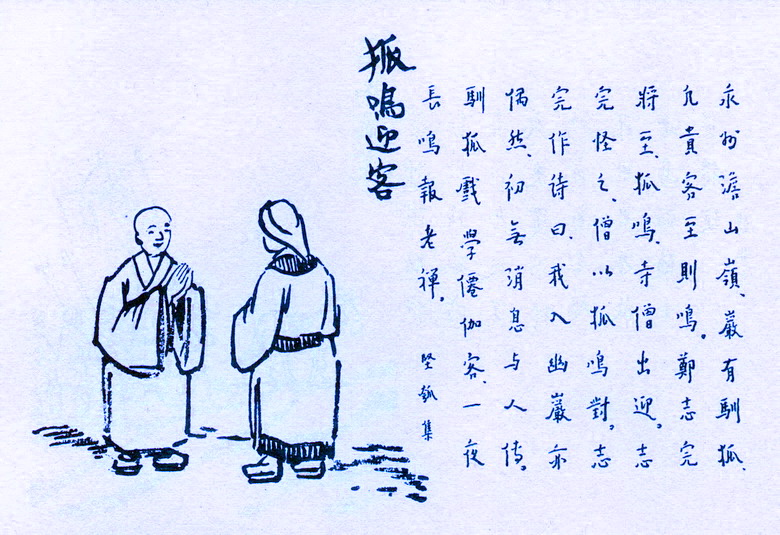 狐鳴迎客
永州澹山嶺、巖有馴狐、
凡貴客至則鳴。鄭志完
將至、狐鳴、寺僧出迎。志
完怪之、僧以狐鳴對。志
完作诗曰、我入幽巖亦
偶然、初無消息与人傳。
馴狐戲學僊伽客、一夜
長鳴報老禪。
堅瓠集